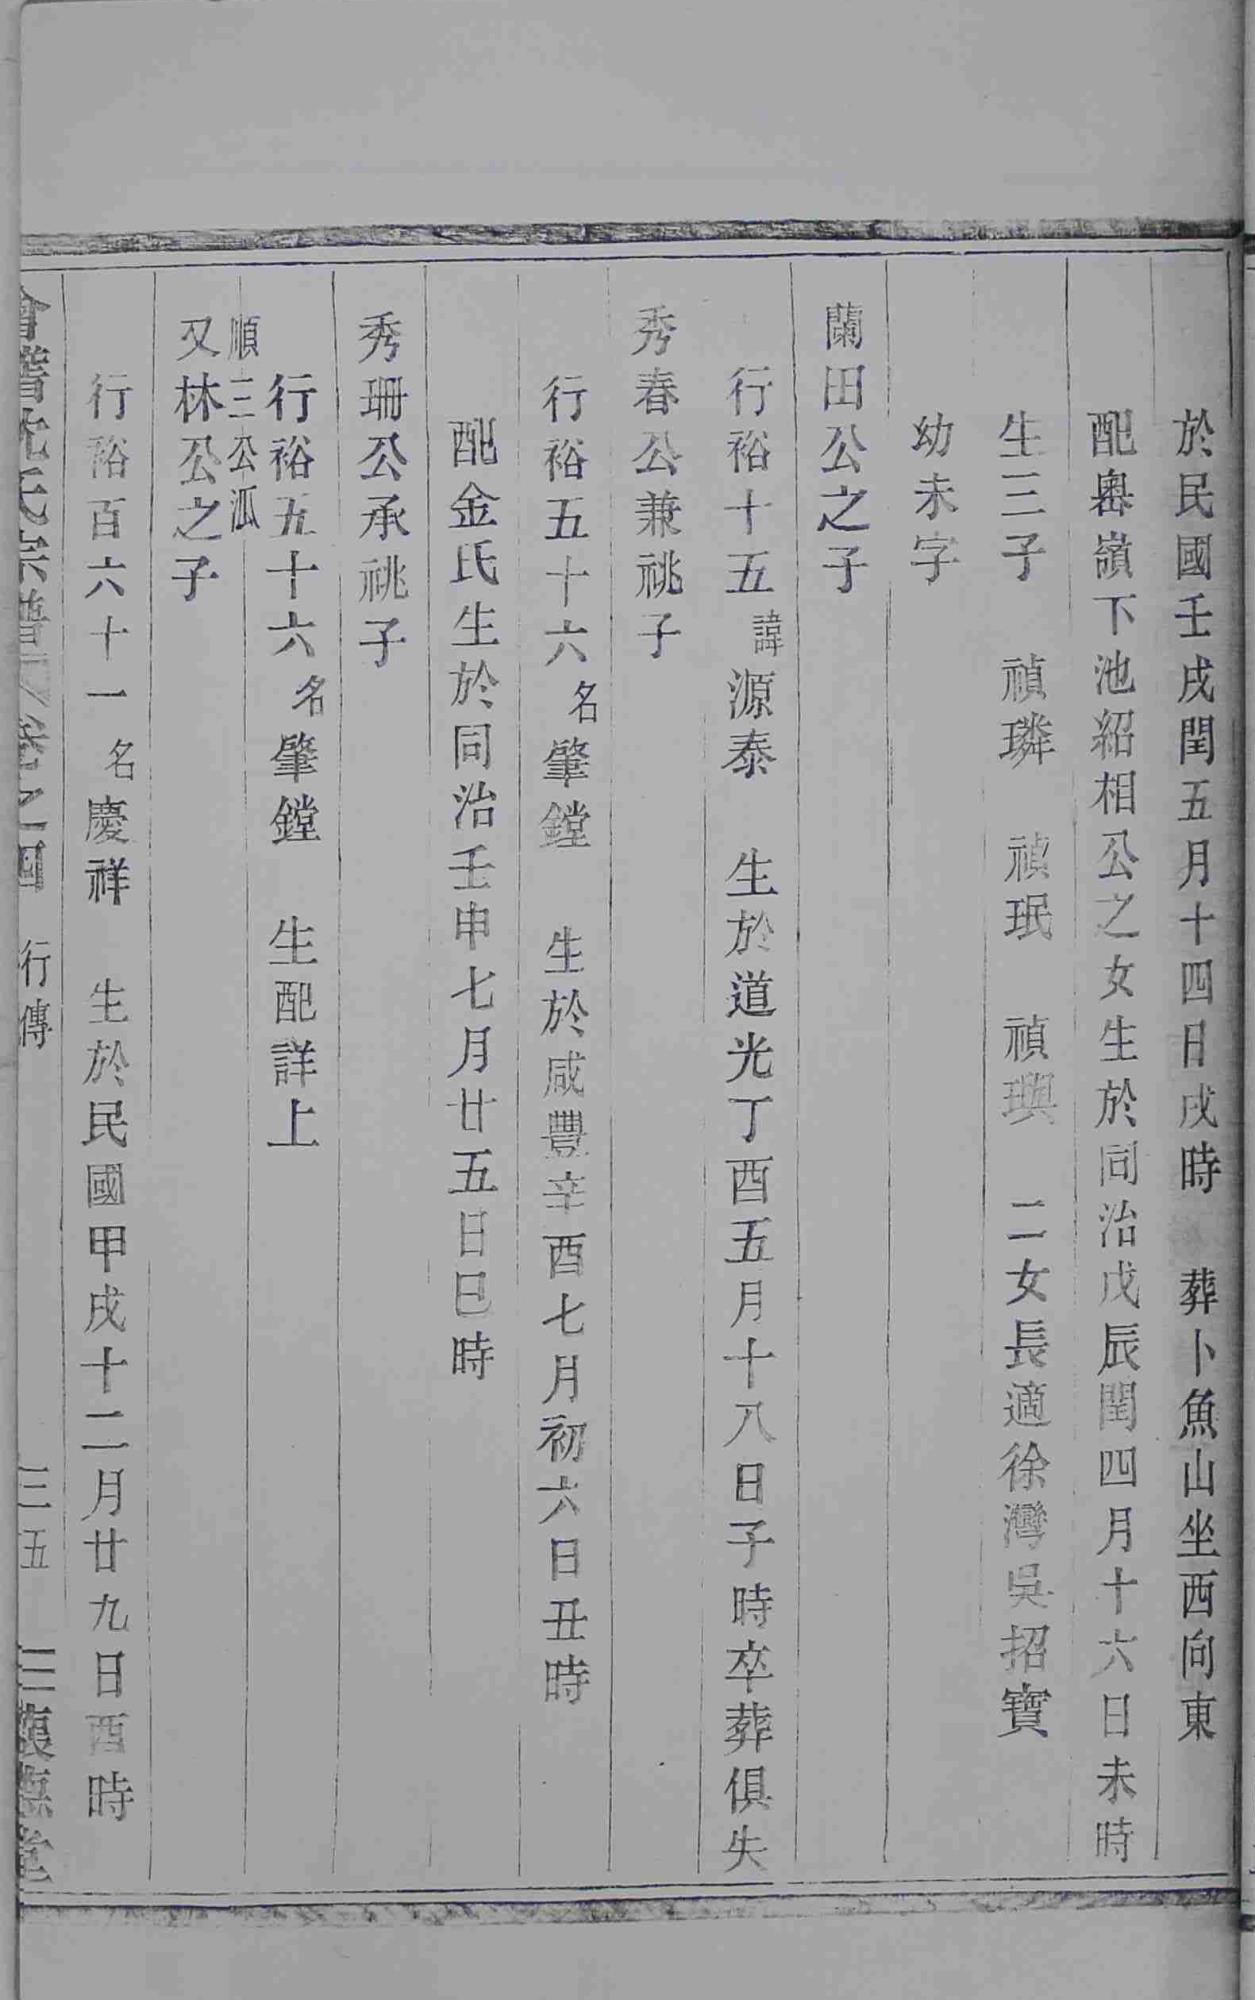 於民國壬戌閏五月十四日戌時　葬卜魚山坐西向東
配嶴嶺下池紹相公之女生於同治戊辰閏四月十六日未時
生三子　禎璘　禎珉　禎璵　二女長適徐灣吳招寶
幼未字
蘭田公之子
行裕十五諱源泰　生於道光丁酉五月十八日子時卒葬俱失
秀春公兼祧子
行裕五十六名肇鏜　生於咸豐辛酉七月初六日丑時
配金氏生於同治壬申七月廿五日巳時
秀珊公承祧子
行裕五十六名肇鏜　生配詳上
順三公派
又林公之子
行裕百六十一名慶祥　生於民國甲戌十二月廿九日酉時
會稽沈氏宗譜　卷之四　行傳　三五　三復堂